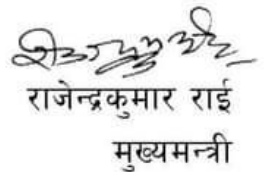 राजेन्द्रकुमार राई
मुख्यमन्त्री